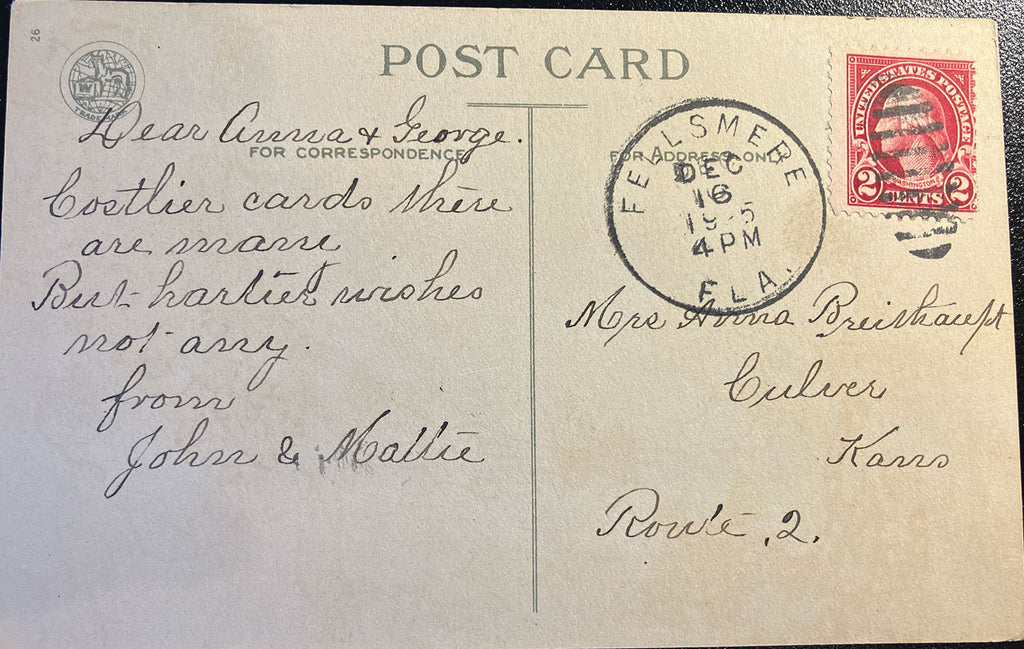 26
POST CARD
TRADE MARK
FOR CORRESPONDENCE
Dear Anna & George.
Costlier cards there
are manie
But hartier wishes
not any.
from
John & Mattie
FOR ADDRESS ONLY
FELLSMERE
DEC
16
4 PM
FLA.
UNITED STATES POSTAGE
WASHINGTON
2 CENTS 2
Mrs Anna Breithaupt
Culver
Kans
Route .2.